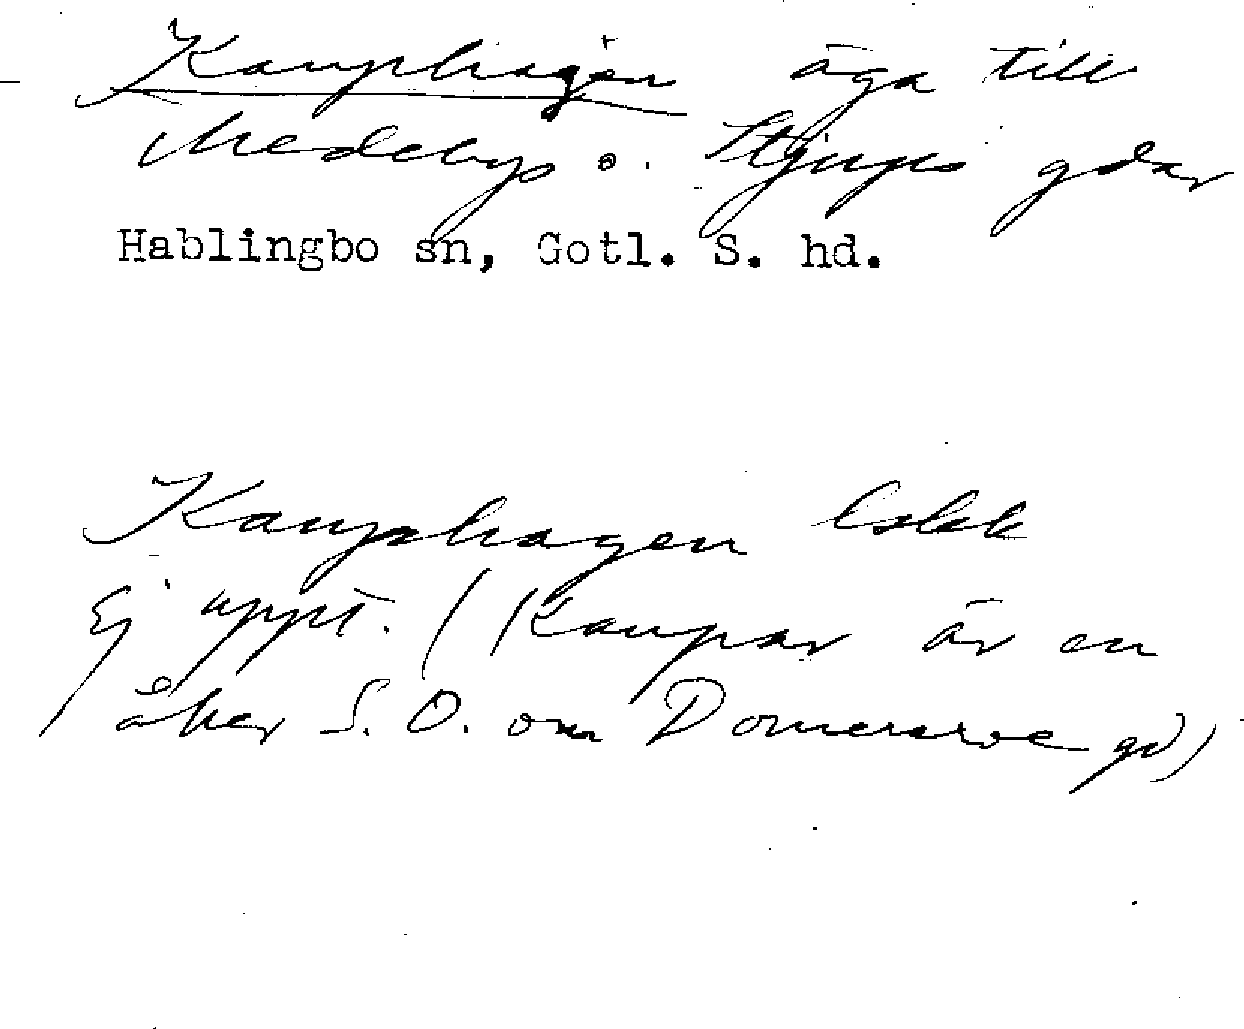 Kauphagen äga till
Medebys o. Stjups gdar
Hablingbo sn, Gotl. S. hd.
Kauphagen
Ej uppt. (Kaupar är en
åker S.O. om Domerarve gd)